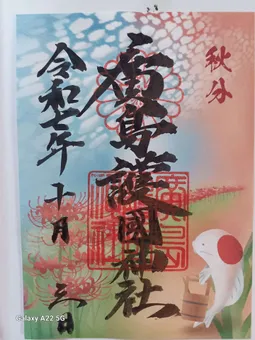 秋分
廣島護國神社
令和七年十月三日
Galaxy A22 5G